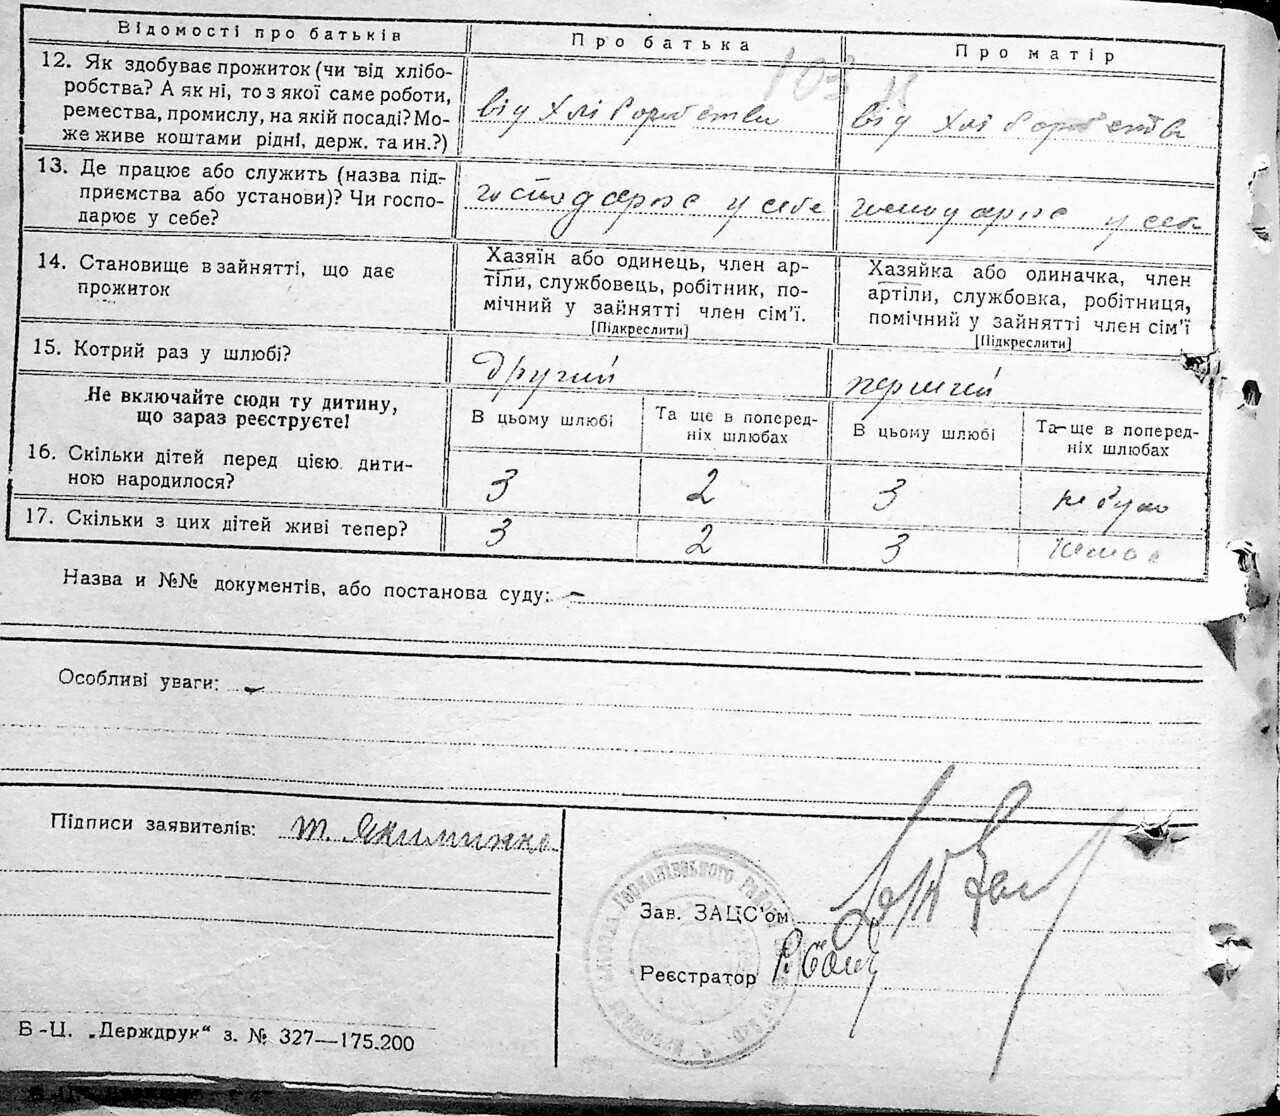 Відомості про батьків
Про батька
Про матір
12. Як здобуває прожиток (чи від хлібо-
робства? А як ні, то з якої саме роботи,
ремества, промислу, на якій посаді? Мо-
же живе коштами рідні, держ. та ин.?)
від хліборобства
від хліборобства
13. Де працює або служить (назва під-
приємства або установи)? Чи госпо-
дарює у себе?
господарює у себе
господарює у себе
14. Становище в зайнятті, що дає
прожиток
Хазяїн або одинець, член ар-
тіли, службовець, робітник, по-
мічний у зайнятті член сім'ї.
[Підкреслити]
Хазяйка або одиначка, член
артіли, службовка, робітниця,
помічний у зайнятті член сім'ї
[Підкреслити]
15. Котрий раз у шлюбі?
другий
перший
Не включайте сюди ту дитину,
що зараз реєструєте!
В цьому шлюбі
Та ще в поперед-
ніх шлюбах
В цьому шлюбі
Та ще в поперед-
ніх шлюбах
16. Скільки дітей перед цією дити-
ною народилося?
3
2
3
не було
17. Скільки з цих дітей живі тепер?
3
2
3
Назва и №№ документів, або постанова суду: –
Особливі уваги:
Підписи заявителів: т. Якименко
Зав. ЗАЦС'ом
Реєстратор
Б-Ц. „Держдрук“ з. № 327—175.200